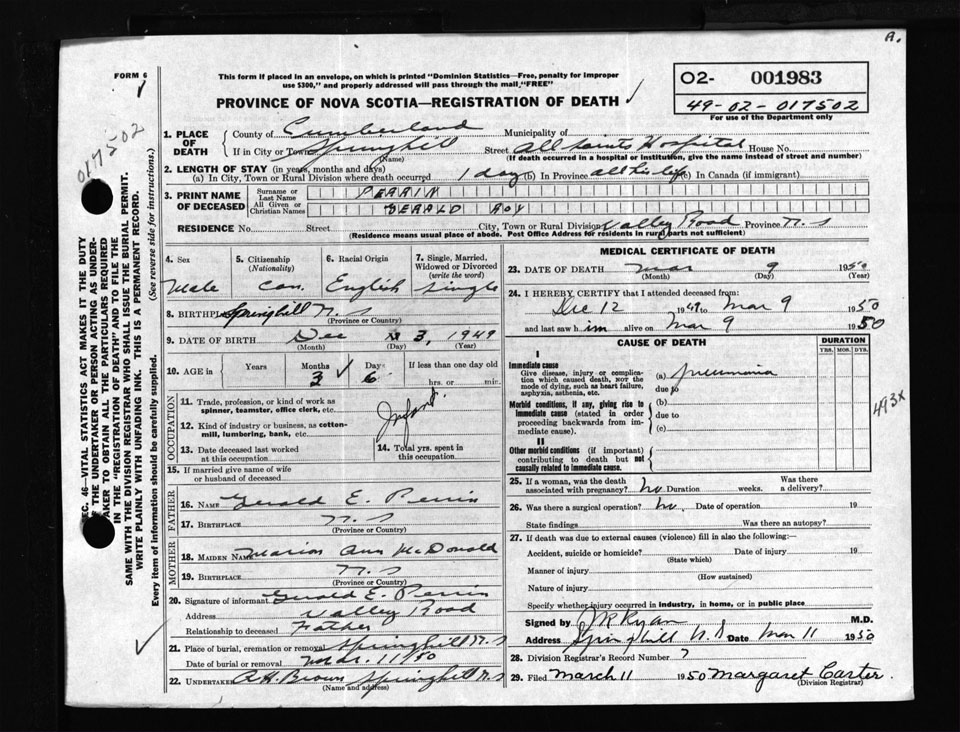 A.
FORM 6
This form if placed in an envelope, on which is printed "Dominion Statistics—Free, penalty for improper
use $300," and properly addressed will pass through the mail "FREE"
PROVINCE OF NOVA SCOTIA—REGISTRATION OF DEATH
O2- 001983
49-02-017502
For use of the Department only
017502
SEC. 46—VITAL STATISTICS ACT MAKES IT THE DUTY
OF THE UNDERTAKER OR PERSON ACTING AS UNDER-
TAKER TO OBTAIN ALL THE PARTICULARS REQUIRED
IN THE "REGISTRATION OF DEATH" AND TO FILE THE
SAME WITH THE DIVISION REGISTRAR WHO SHALL ISSUE THE BURIAL PERMIT.
WRITE PLAINLY WITH UNFADING INK. THIS IS A PERMANENT RECORD.
Every item of information should be carefully supplied. (See reverse side for instructions.)
1. PLACE OF DEATH
County of Cumberland Municipality of
If in City or Town Springhill Street All Saints Hospital House No.
(Name) (If death occurred in a hospital or institution, give the name instead of street and number)
2. LENGTH OF STAY (in years, months and days)
(a) In City, Town or Rural Division where death occurred 1 day (b) In Province all his life (c) In Canada (if immigrant)
3. PRINT NAME OF DECEASED
Surname or Last Name PERRIN
All Given or Christian Names GERALD ROY
RESIDENCE No. Street City, Town or Rural Division Valley Road Province N.S
(Residence means usual place of abode. Post Office Address for residents in rural parts not sufficient)
4. Sex Male
5. Citizenship (Nationality) Can.
6. Racial Origin English
7. Single, Married, Widowed or Divorced (write the word) Single
8. BIRTHPLACE Springhill N.S
(Province or Country)
9. DATE OF BIRTH Dec 3, 1949
(Month) (Day) (Year)
10. AGE in Years Months 3 Days 6 If less than one day old
hrs. or min.
OCCUPATION
11. Trade, profession, or kind of work as
spinner, teamster, office clerk, etc.
Infant
12. Kind of industry or business, as cotton-
mill, lumbering, bank, etc.
13. Date deceased last worked
at this occupation
14. Total yrs. spent in
this occupation
15. If married give name of wife
or husband of deceased
FATHER
16. NAME Gerald E. Perrin
17. BIRTHPLACE N.S
(Province or Country)
MOTHER
18. MAIDEN NAME Marion Ann McDonald
19. BIRTHPLACE N.S
(Province or Country)
20. Signature of informant Gerald E. Perrin
Address Valley Road
Relationship to deceased Father
21. Place of burial, cremation or removal Springhill N.S
Date of burial or removal Mar. 11/50
22. UNDERTAKER A.H. Brown Springhill N.S
(Name and address)
MEDICAL CERTIFICATE OF DEATH
23. DATE OF DEATH Mar 9 1950
(Month) (Day) (Year)
24. I HEREBY CERTIFY that I attended deceased from:
Dec 12 1949 to Mar 9 1950
and last saw him alive on Mar 9 1950
CAUSE OF DEATH
DURATION
YRS. MOS. DYS.
I
Immediate cause
Give disease, injury or complica-
tion which caused death, not the
mode of dying, such as heart failure,
asphyxia, asthenia, etc.
(a) Pneumonia
due to
Morbid conditions, if any, giving rise to
immediate cause (stated in order
proceeding backwards from im-
mediate cause).
(b)
due to
(c)
II
Other morbid conditions (if important)
contributing to death but not
causally related to immediate cause.
493X
25. If a woman, was the death
associated with pregnancy? no Duration weeks. Was there
a delivery?
26. Was there a surgical operation? no. Date of operation 19
State findings Was there an autopsy?
27. If death was due to external causes (violence) fill in also the following:—
Accident, suicide or homicide? Date of injury 19
(State which)
Manner of injury
(How sustained)
Nature of injury
Specify whether injury occurred in industry, in home, or in public place
Signed by J R Ryan M.D.
Address Springhill N.S Date Mar 11 1950
28. Division Registrar's Record Number 7
29. Filed March 11 1950 Margaret Carter
(Division Registrar)